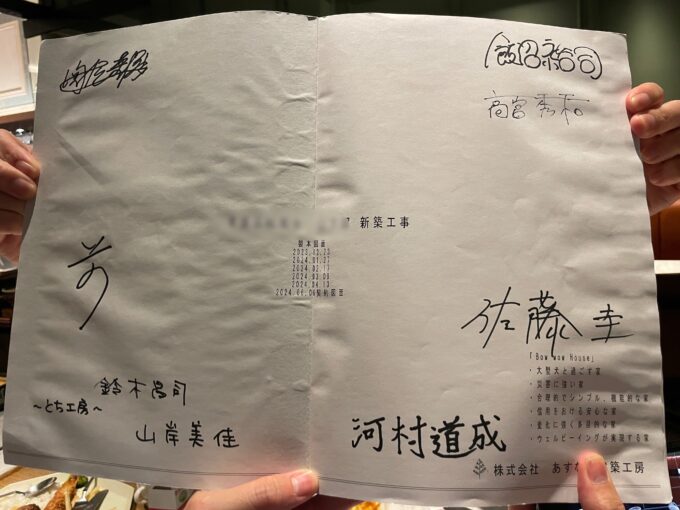 飯沼裕司
高宮秀和
新築工事
製本図面
2023.12.23
2024.01.27
2024.02.17
2024.03.09
2024.04.13
2024.06.06契約図面
佐藤圭
「Bow wow House」
・大型犬と過ごす家
・災害に強い家
・合理的でシンプル、機能的な家
・信用をおける安心な家
・変化に強く多目的な家
・ウェルビーイングが実現する家
鈴木昌司
～とち工房～
山岸美佳
河村道成
株式会社 あすな 築工房